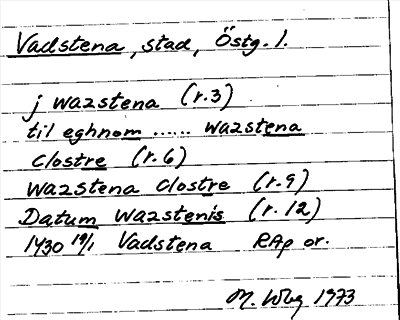 Vadstena, stad, Östg. l.
j wazstena (r.3)
til eghnom ...... wazstena
clostre (r.6)
wazstena clostre (r.9)
Datum wazstenis (r.12)
1430 19/1 Vadstena RAp or.
M. Wbg 1973